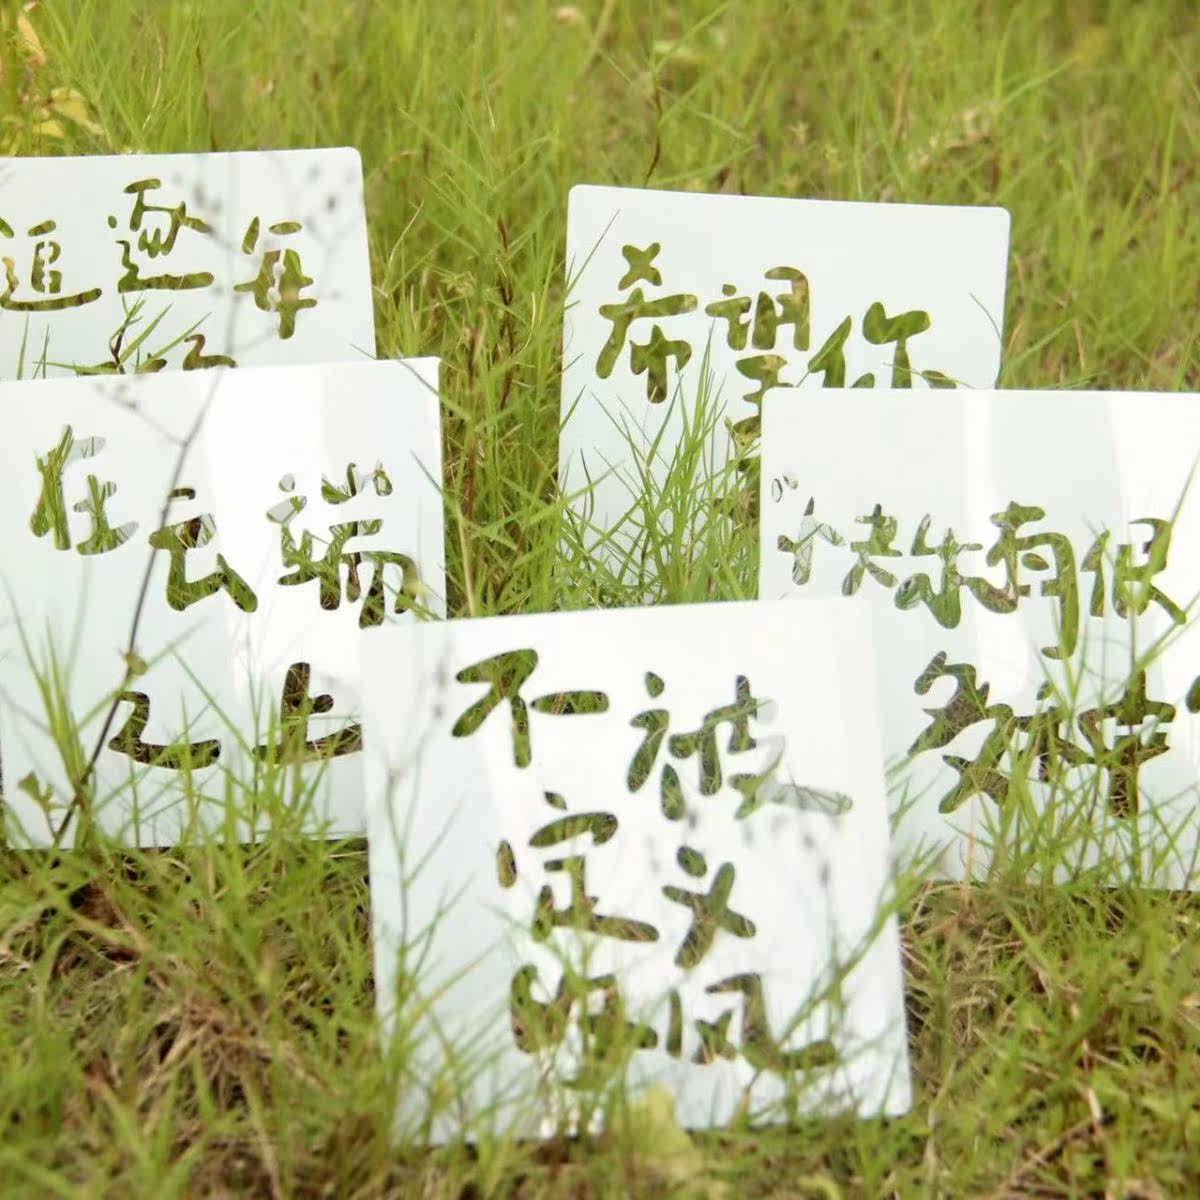 追逐每
希望你
在云端
之上
快乐有很
多种
不被
定义
风